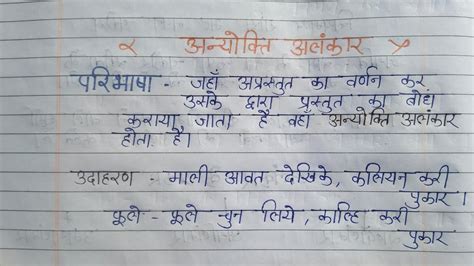 अन्योक्ति अलंकार
परिभाषा - जहाँ अप्रस्तुत का वर्णन कर
उसके द्वारा प्रस्तुत का बोध
कराया जाता है वहाँ अन्योक्ति अलंकार
होता है।
उदाहरण - माली आवत देखिके, कलियन करी
पुकार ।
फूले - फूले चुन लिये, काल्हि करी
पुकार